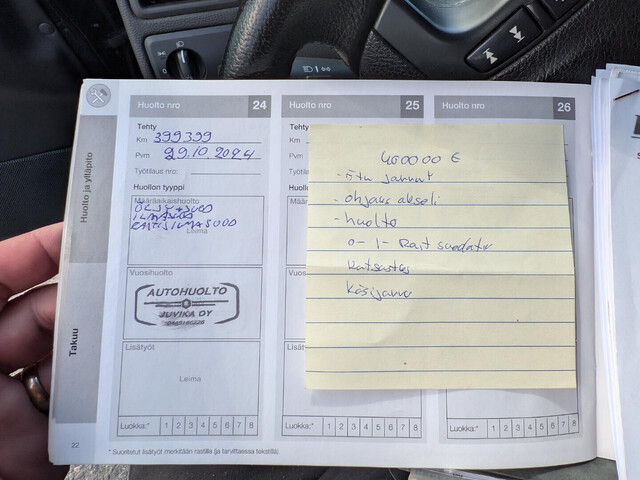 Huolto nro 24
Huolto nro 25
Huolto nro 26
Tehty
Km 399399
Pvm 29.10.2024
Työtilaus nro:
Huollon tyyppi
Määräaikaishuolto
ÖLJY+SUOD
ILMASUOD
RAITISILMASUOD
Leima
Vuosihuolto
AUTOHUOLTO
JUVIKA OY
Lisätyöt
Leima
Luokka:* 1 2 3 4 5 6 7 8
Tehty
Km
Pvm
Työtilaus
Huollon
Määräa
Vuosihu
Lisätyö
Luokka:* 1 2 3 4 5 6 7 8
Luokka:* 1 2 3 4 5 6 7 8
400000 €
- Etu jarrut
- ohjaus akseli
- huolto
Katsastus
Käsijarru
Huolto ja ylläpito
Takuu
22
* Suoritetut lisätyöt merkitään rastilla (ja tarvittaessa tekstillä).